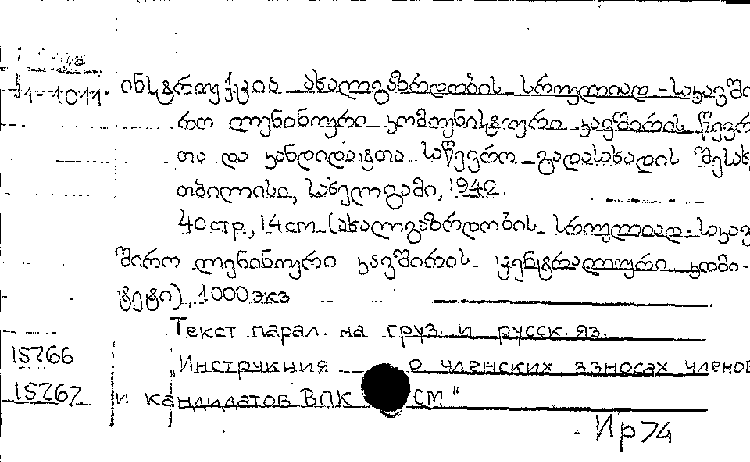 ინსტრუქცია ახალგაზრდობის სრულიად-საკავში
რო ლენინური კომუნისტური კავშირის წევრ
თა და კანდიდატთა საწევრო გადასახადის შესახ
თბილისი, სახელგამი, 1940.
40стр., 14см (ახალგაზრდობის სრულიად-საკავ
შირო ლენინური კავშირის ცენტრალური კომი-
ტეტი), 1000экз
Текст парал. на груз. и русск. яз.
15266 „Инструкция о членских взносах членов
15267 и кандидатов ВЛК СМ"
Ир74